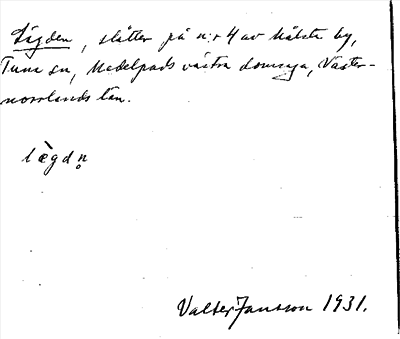 Lägden, slåtter på n:r 4 av Målsta by,
Tuna sn, Medelpads västra domsaga, Väster-
norrlands län.
lægdn̥
Valter Jansson 1931.